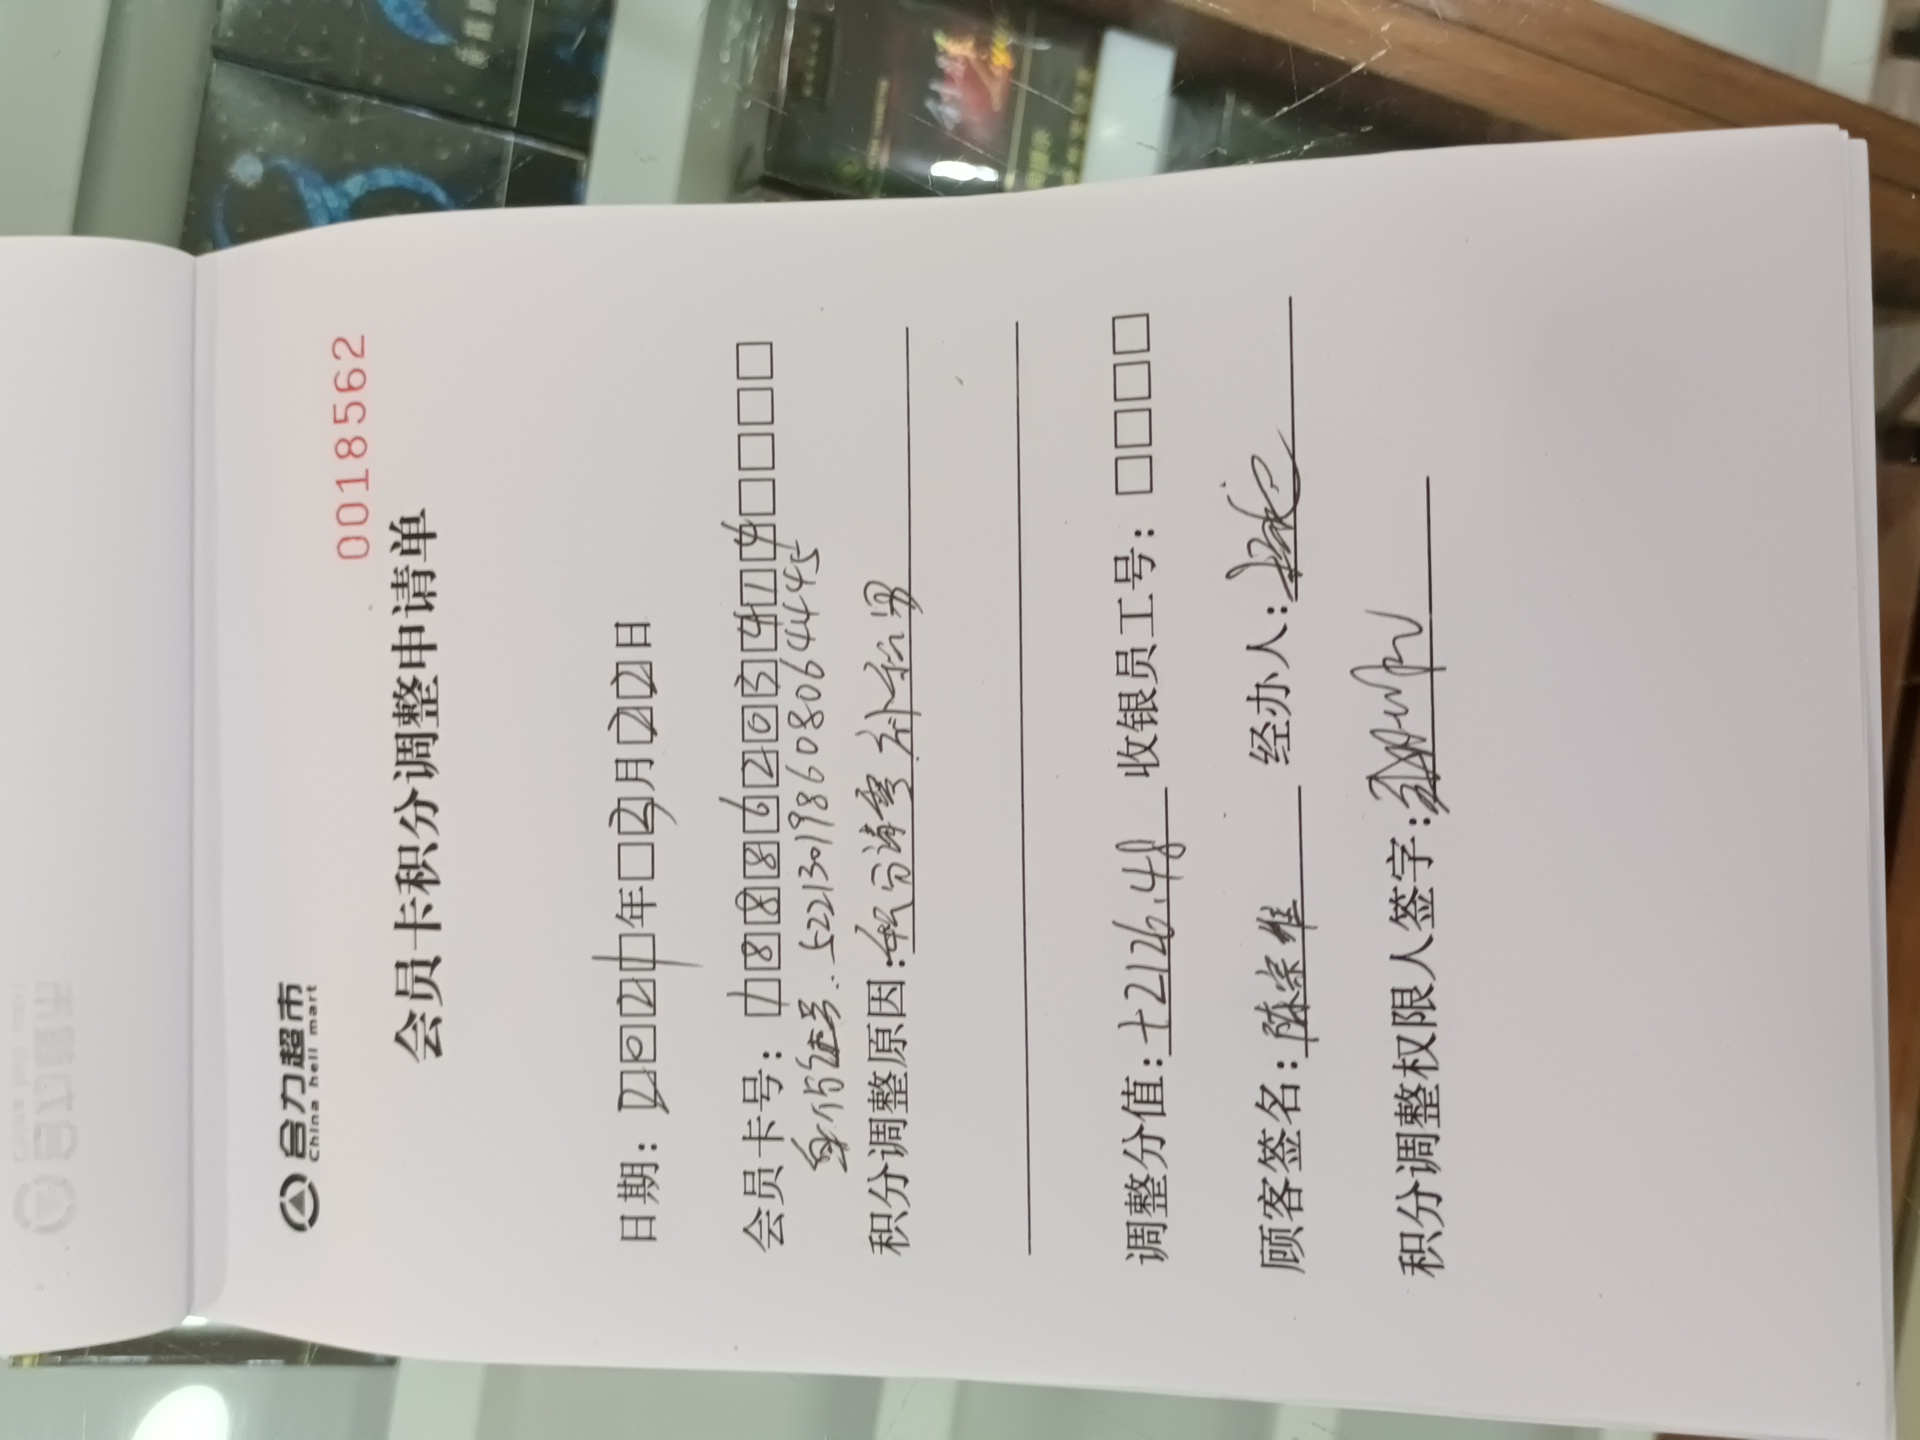 合力超市
China heli mart
0018562
会员卡积分调整申请单
日期：2021年2月22日
会员卡号：18886203414
身份证号：522130198608064445
积分调整原因：积分清零 补积分
调整分值：+2126.48 收银员工号：
顾客签名：陈宗维 经办人：
积分调整权限人签字：